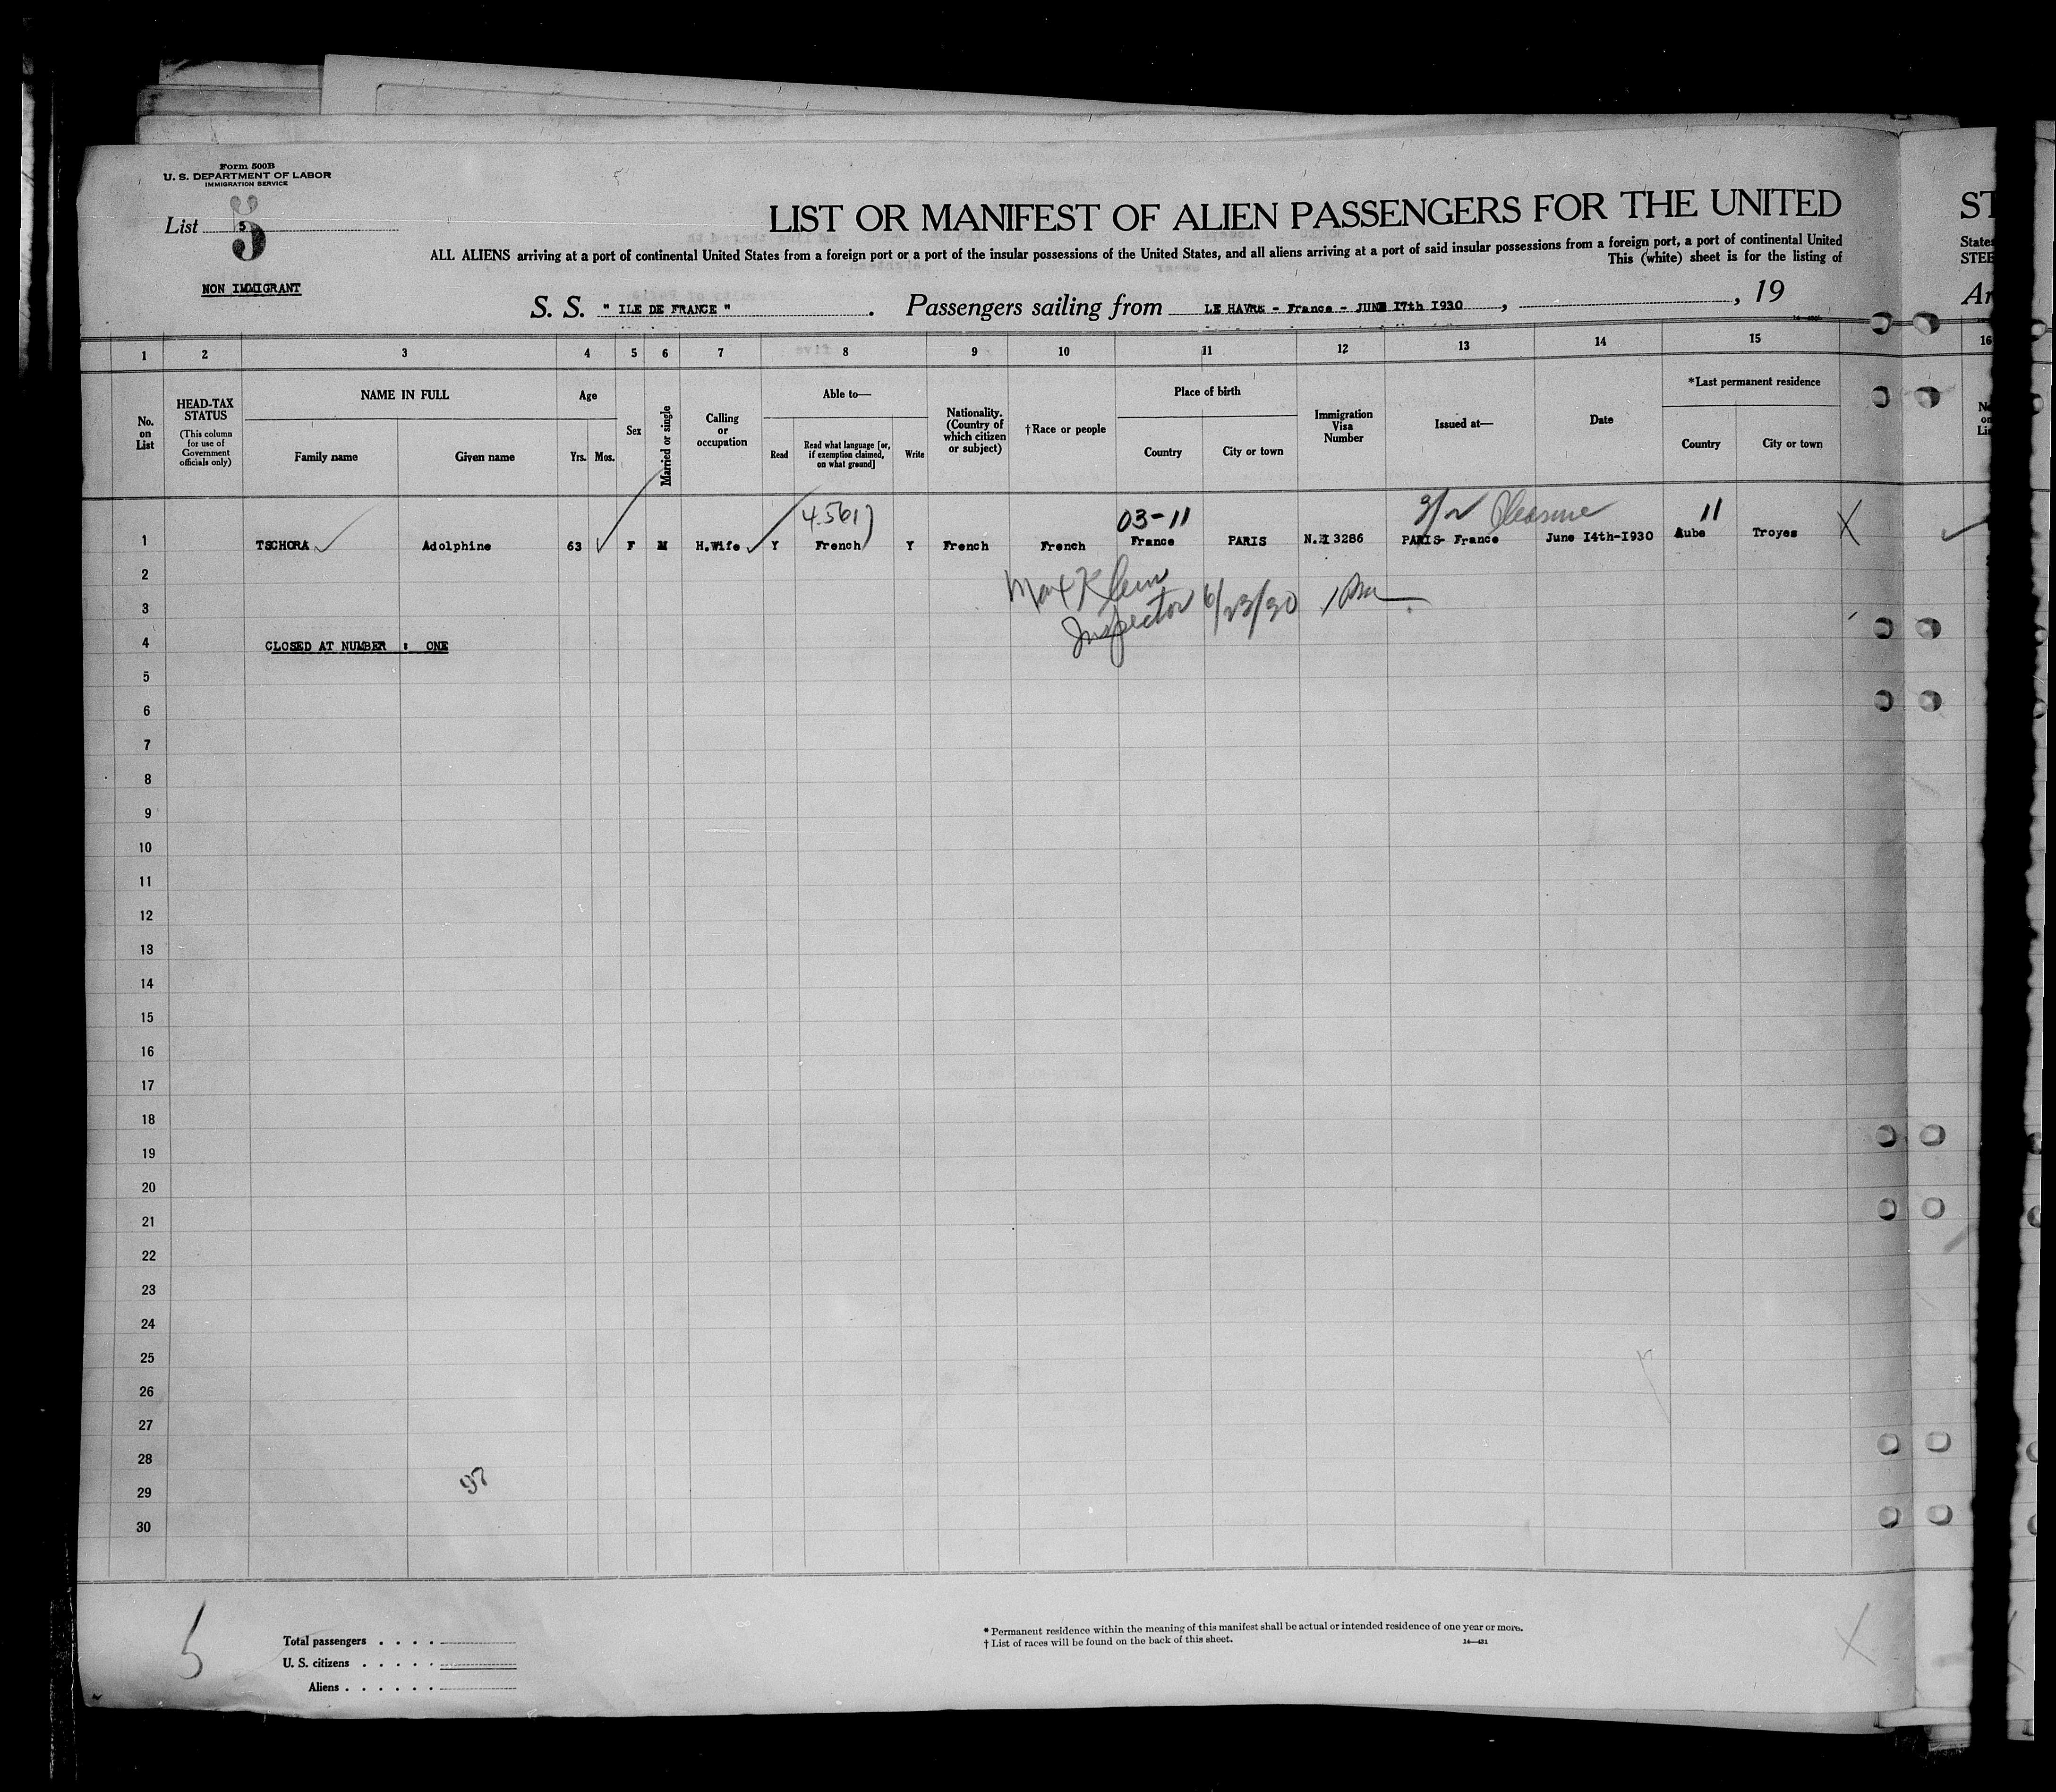 Form 500B
U. S. DEPARTMENT OF LABOR
IMMIGRATION SERVICE
List 5
5
NON IMMIGRANT
LIST OR MANIFEST OF ALIEN PASSENGERS FOR THE UNITED
ALL ALIENS arriving at a port of continental United States from a foreign port or a port of the insular possessions of the United States, and all aliens arriving at a port of said insular possessions from a foreign port, a port of continental United
This (white) sheet is for the listing of
S. S. " ILE DE FRANCE " . Passengers sailing from LE HAVRE - France - JUNE 17th I930 , , 19
ST
States
STEE
Ar
1 2 3 4 5 6 7 8 9 10 11 12 13 14 15 16
No. on List
HEAD-TAX STATUS
(This column for use of Government officials only)
NAME IN FULL
Family name Given name
Age
Yrs. Mos.
Sex
Married or single
Calling or occupation
Able to—
Read
Read what language [or, if exemption claimed, on what ground]
Write
Nationality. (Country of which citizen or subject)
†Race or people
Place of birth
Country City or town
Immigration Visa Number
Issued at—
Date
*Last permanent residence
Country City or town
4561) 03-11 Pleasure 11
1 TSCHORA Adolphine 63 F M H.Wife Y French Y French French France PARIS N.I 3286 PARIS- France June I4th-I930 Aube Troyes
2
Max Klein
3
Inspector 6/23/30
4 CLOSED AT NUMBER : ONE
5
6
7
8
9
10
11
12
13
14
15
16
17
18
19
20
21
22
23
24
25
26
27
28
97
29
30
5
Total passengers . . . .
U. S. citizens . . . . .
Aliens . . . . . .
* Permanent residence within the meaning of this manifest shall be actual or intended residence of one year or more.
† List of races will be found on the back of this sheet.
14—431